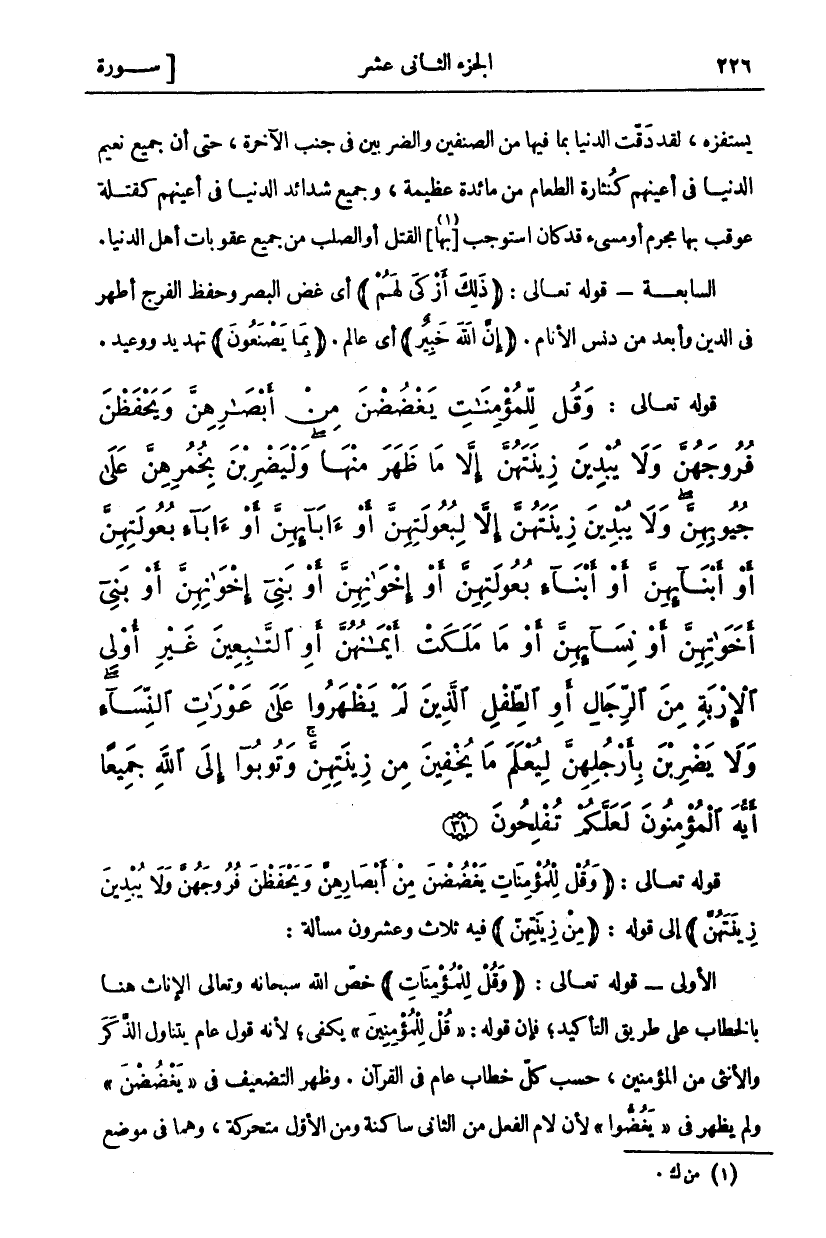 ٢٢٦ الجزء الثانى عشر [ سورة
يستفزه ، لقد دَقّت الدنيا بما فيها من الصنفين والضربين فى جنب الآخرة ، حتى أن جميع نعيم
الدنيا فى أعينهم كنُثارة الطعام من مائدة عظيمة ، وجميع شدائد الدنيا فى أعينهم كفتلة
عوقب بها مجرم أو مسىء قد كان استوجب [بها](١) القتل أو الصلب من جميع عقوبات أهل الدنيا .
السابعة – قوله تعالى : ﴿ ذَلِكَ أَزْكَى لَهُمْ ﴾ أى غض البصر وحفظ الفرج أطهر
فى الدين وأبعد من دنس الأنام . ﴿ إِنَّ اللهَ خَبِيرٌ ﴾ أى عالم . ﴿ بِمَا يَصْنَعُونَ ﴾ تهديد ووعيد .
قوله تعالى : وَقُل لِّلْمُؤْمِنَٰتِ يَغْضُضْنَ مِنْ أَبْصَٰرِهِنَّ وَيَحْفَظْنَ
فُرُوجَهُنَّ وَلَا يُبْدِينَ زِينَتَهُنَّ إِلَّا مَا ظَهَرَ مِنْهَا ۖ وَلْيَضْرِبْنَ بِخُمُرِهِنَّ عَلَىٰ
جُيُوبِهِنَّ ۖ وَلَا يُبْدِينَ زِينَتَهُنَّ إِلَّا لِبُعُولَتِهِنَّ أَوْ ءَابَآئِهِنَّ أَوْ ءَابَآءِ بُعُولَتِهِنَّ
أَوْ أَبْنَآئِهِنَّ أَوْ أَبْنَآءِ بُعُولَتِهِنَّ أَوْ إِخْوَٰنِهِنَّ أَوْ بَنِىٓ إِخْوَٰنِهِنَّ أَوْ بَنِىٓ
أَخَوَٰتِهِنَّ أَوْ نِسَآئِهِنَّ أَوْ مَا مَلَكَتْ أَيْمَٰنُهُنَّ أَوِ ٱلتَّٰبِعِينَ غَيْرِ أُوْلِى
ٱلْإِرْبَةِ مِنَ ٱلرِّجَالِ أَوِ ٱلطِّفْلِ ٱلَّذِينَ لَمْ يَظْهَرُوا عَلَىٰ عَوْرَٰتِ ٱلنِّسَآءِ ۖ
وَلَا يَضْرِبْنَ بِأَرْجُلِهِنَّ لِيُعْلَمَ مَا يُخْفِينَ مِن زِينَتِهِنَّ ۚ وَتُوبُوٓا إِلَى ٱللَّهِ جَمِيعًا
أَيُّهَ ٱلْمُؤْمِنُونَ لَعَلَّكُمْ تُفْلِحُونَ ﴿٣١﴾
قوله تعالى : ﴿ وَقُلْ لِلْمُؤْمِنَاتِ يَغْضُضْنَ مِنْ أَبْصَارِهِنَّ وَيَحْفَظْنَ فُرُوجَهُنَّ وَلَا يُبْدِينَ
زِينَتَهُنَّ ﴾ إلى قوله : ﴿ مِنْ زِينَتِهِنّ ﴾ فيه ثلاث وعشرون مسألة :
الأولى – قوله تعالى : ﴿ وَقُلْ لِلْمُؤْمِنَاتِ ﴾ خصّ الله سبحانه وتعالى الإناث هنا
بالخطاب على طريق التأكيد؛ فإن قوله : « قُلْ لِلْمُؤْمِنِينَ » يكفى؛ لأنه قول عام يتناول الذّكَرَ
والأنثى من المؤمنين ، حسب كلّ خطاب عام فى القرآن . وظهر التضعيف فى « يَغْضُضْنَ »
ولم يظهر فى « يَغُضُّوا » لأن لام الفعل من الثانى ساكنة ومن الأوّل متحركة ، وهما فى موضع
(١) من ك .